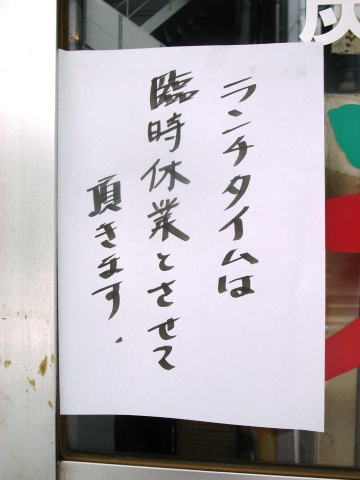 ランチタイムは
臨時休業とさせて
頂きます.